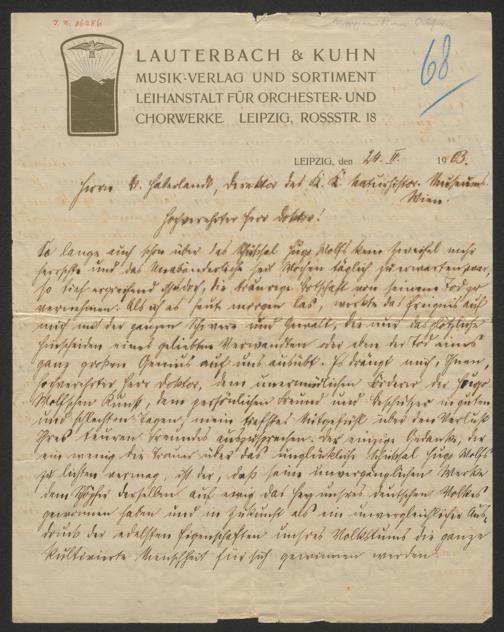 J. N. 86286
68
LAUTERBACH & KUHN
MUSIK-VERLAG UND SORTIMENT
LEIHANSTALT FÜR ORCHESTER- UND
CHORWERKE. LEIPZIG, ROSSSTR. 18
LEIPZIG, den 24. II. 1903.
Herrn M. Haberlandt, Direktor des K. K. naturhistor. Museums.
Wien.
Hochverehrter Herr Doktor!
So lange auch schon über das Schicksal Hugo Wolfs kein Zweifel mehr
herrschte und das Unabänderliche seit Wochen täglich zu erwarten war,
so tief ergreifend die traurige Botschaft von seinem Tod zu
vernehmen. Als ich es heute morgen las, wirkte das Ereignis auf
mich mit der ganzen Schwere und Gewalt, die nur das plötzliche
Hinscheiden eines geliebten Verwandten oder eben der Tod eines
ganz großen Genius auf uns ausübt. Es drängt mich, Ihnen,
hochverehrter Herr Doktor, dem unermüdlichen Förderer der Hugo
Wolfschen Kunst, dem persönlichen Freund und Beschützer in guten
und schlechten Tagen, mein tiefstes Mitgefühl über den Verlust
Ihres teuren Freundes auszusprechen. Der einzige Gedanke, der
ein wenig die Trauer über das unglückliche Schicksal Hugo Wolfs
zu lindern vermag, ist der, daß seine unvergänglichen Werke
dem Schöpfer derselben auf ewig das Herz unsres deutschen Volkes
gewonnen haben und in Zukunft als ein unvergleichlicher Aus-
druck der edelsten Eigenschaften unsres Volkstums die ganze
kultivierte Menschheit für sich gewinnen werden.